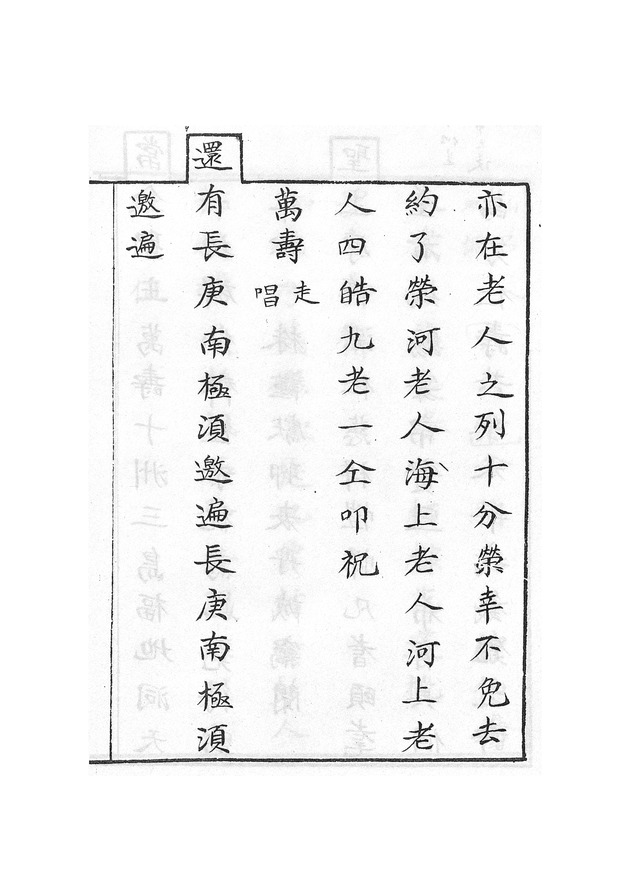 亦在老人之列十分榮幸不免去
約了榮河老人海上老人河上老
人四皓九老一仝叩祝
萬壽走唱
還有長庚南極須邀遍長庚南極須
邀遍